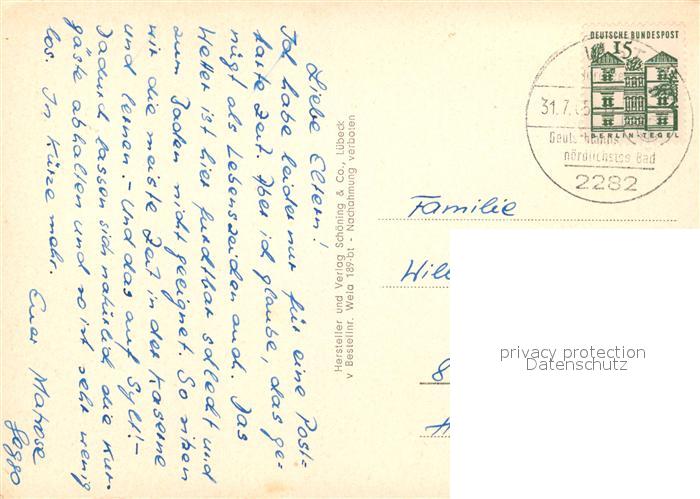 Liebe Eltern!
Ich habe leider nur für eine Post-
karte Zeit. Aber ich glaube, das ge-
nügt als Lebenszeichen auch. Das
Wetter ist hier furchtbar schlecht und
zum Baden nicht geeignet. So sitzen
wir die meiste Zeit in der Kaserne
und lernen. - Und das auf Sylt! -
Dadurch lassen sich natürlich die Kur-
gäste abhalten und so ist sehr wenig
los. In Kürze mehr.
Euer Matrose
Hersteller und Verlag Schöning & Co., Lübeck
v Bestellnr. Wela 189-bt - Nachahmung verboten
DEUTSCHE BUNDESPOST
15
BERLIN-TEGEL
31.7.
nördlichstes Bad
2282
Familie
privacy protection
Datenschutz